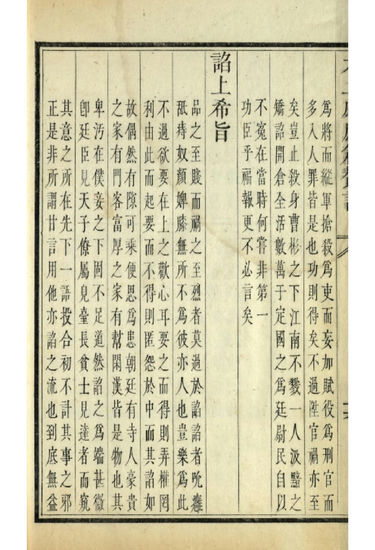 為將而縱軍搶殺為吏而妄加賦役為刑官而
多入人罪皆是也功則得矣不過陞官禍亦至
矣豈止殺身曹彬之下江南不戮一人汲黯之
矯詔開倉全活數萬于定國之為廷尉民自以
不冤在當時何嘗非第一
功臣乎福報更不必言矣
諂上希旨
品之至賤而禍之至烈者莫過於諂諂者吮癰
舐痔奴顏婢膝無所不為彼亦人也豈樂為此
不過欲要在上之歡心耳要之而得則弄權罔
利由此而起要而不得則匿怨於中而其諂如
故偶然有隙可乘便思為患朝廷有寺人豪貴
之家有門客富厚之家有幫閑漢皆是物也其
卑污在僕妾之下固不足道然諂之為端甚微
卽廷臣見天子僚屬見臺長貧士見達者而窺
其意之所在先下一語投合初不計其事之邪
正是非所謂甘言用他亦諂之流也到底無益